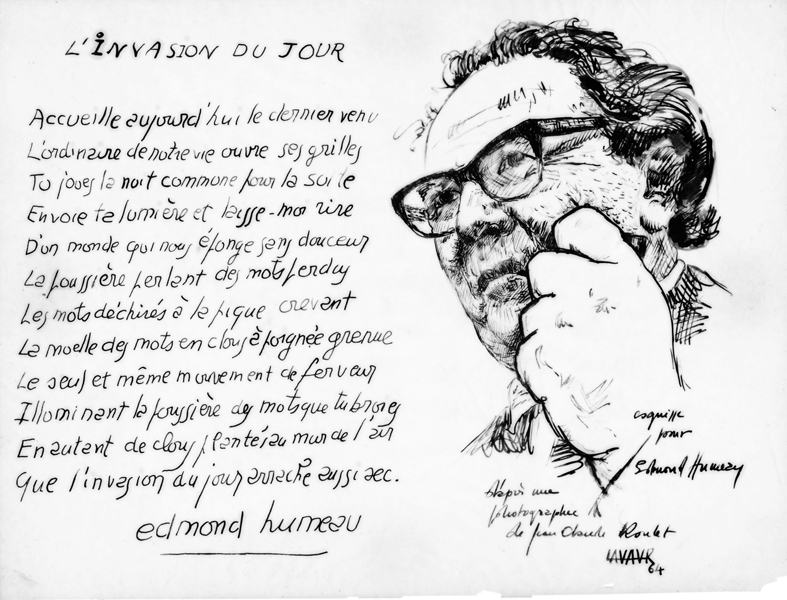 L'INVASION DU JOUR
Accueille aujourd'hui le dernier venu
L'ordinaire de notre vie ouvre ses grilles
Tu joues la nuit commune pour la suite
Envoie ta lumière et laisse-moi rire
D'un monde qui nous éponge sans douceur
La poussière perlant des mots perdus
Les mots déchirés à la pique crevant
La moelle des mots en clous à poignée grenue
Le seul et même mouvement de ferveur
Illuminant la poussière des mots que tu broies
En autant de clous plantés au mur de l'air
Que l'invasion du jour arrache aussi sec.
edmond humeau
esquisse
pour
Edmond Humeau
d'après une
photographie
de Jean Claude Roulet
LAVAUR
64